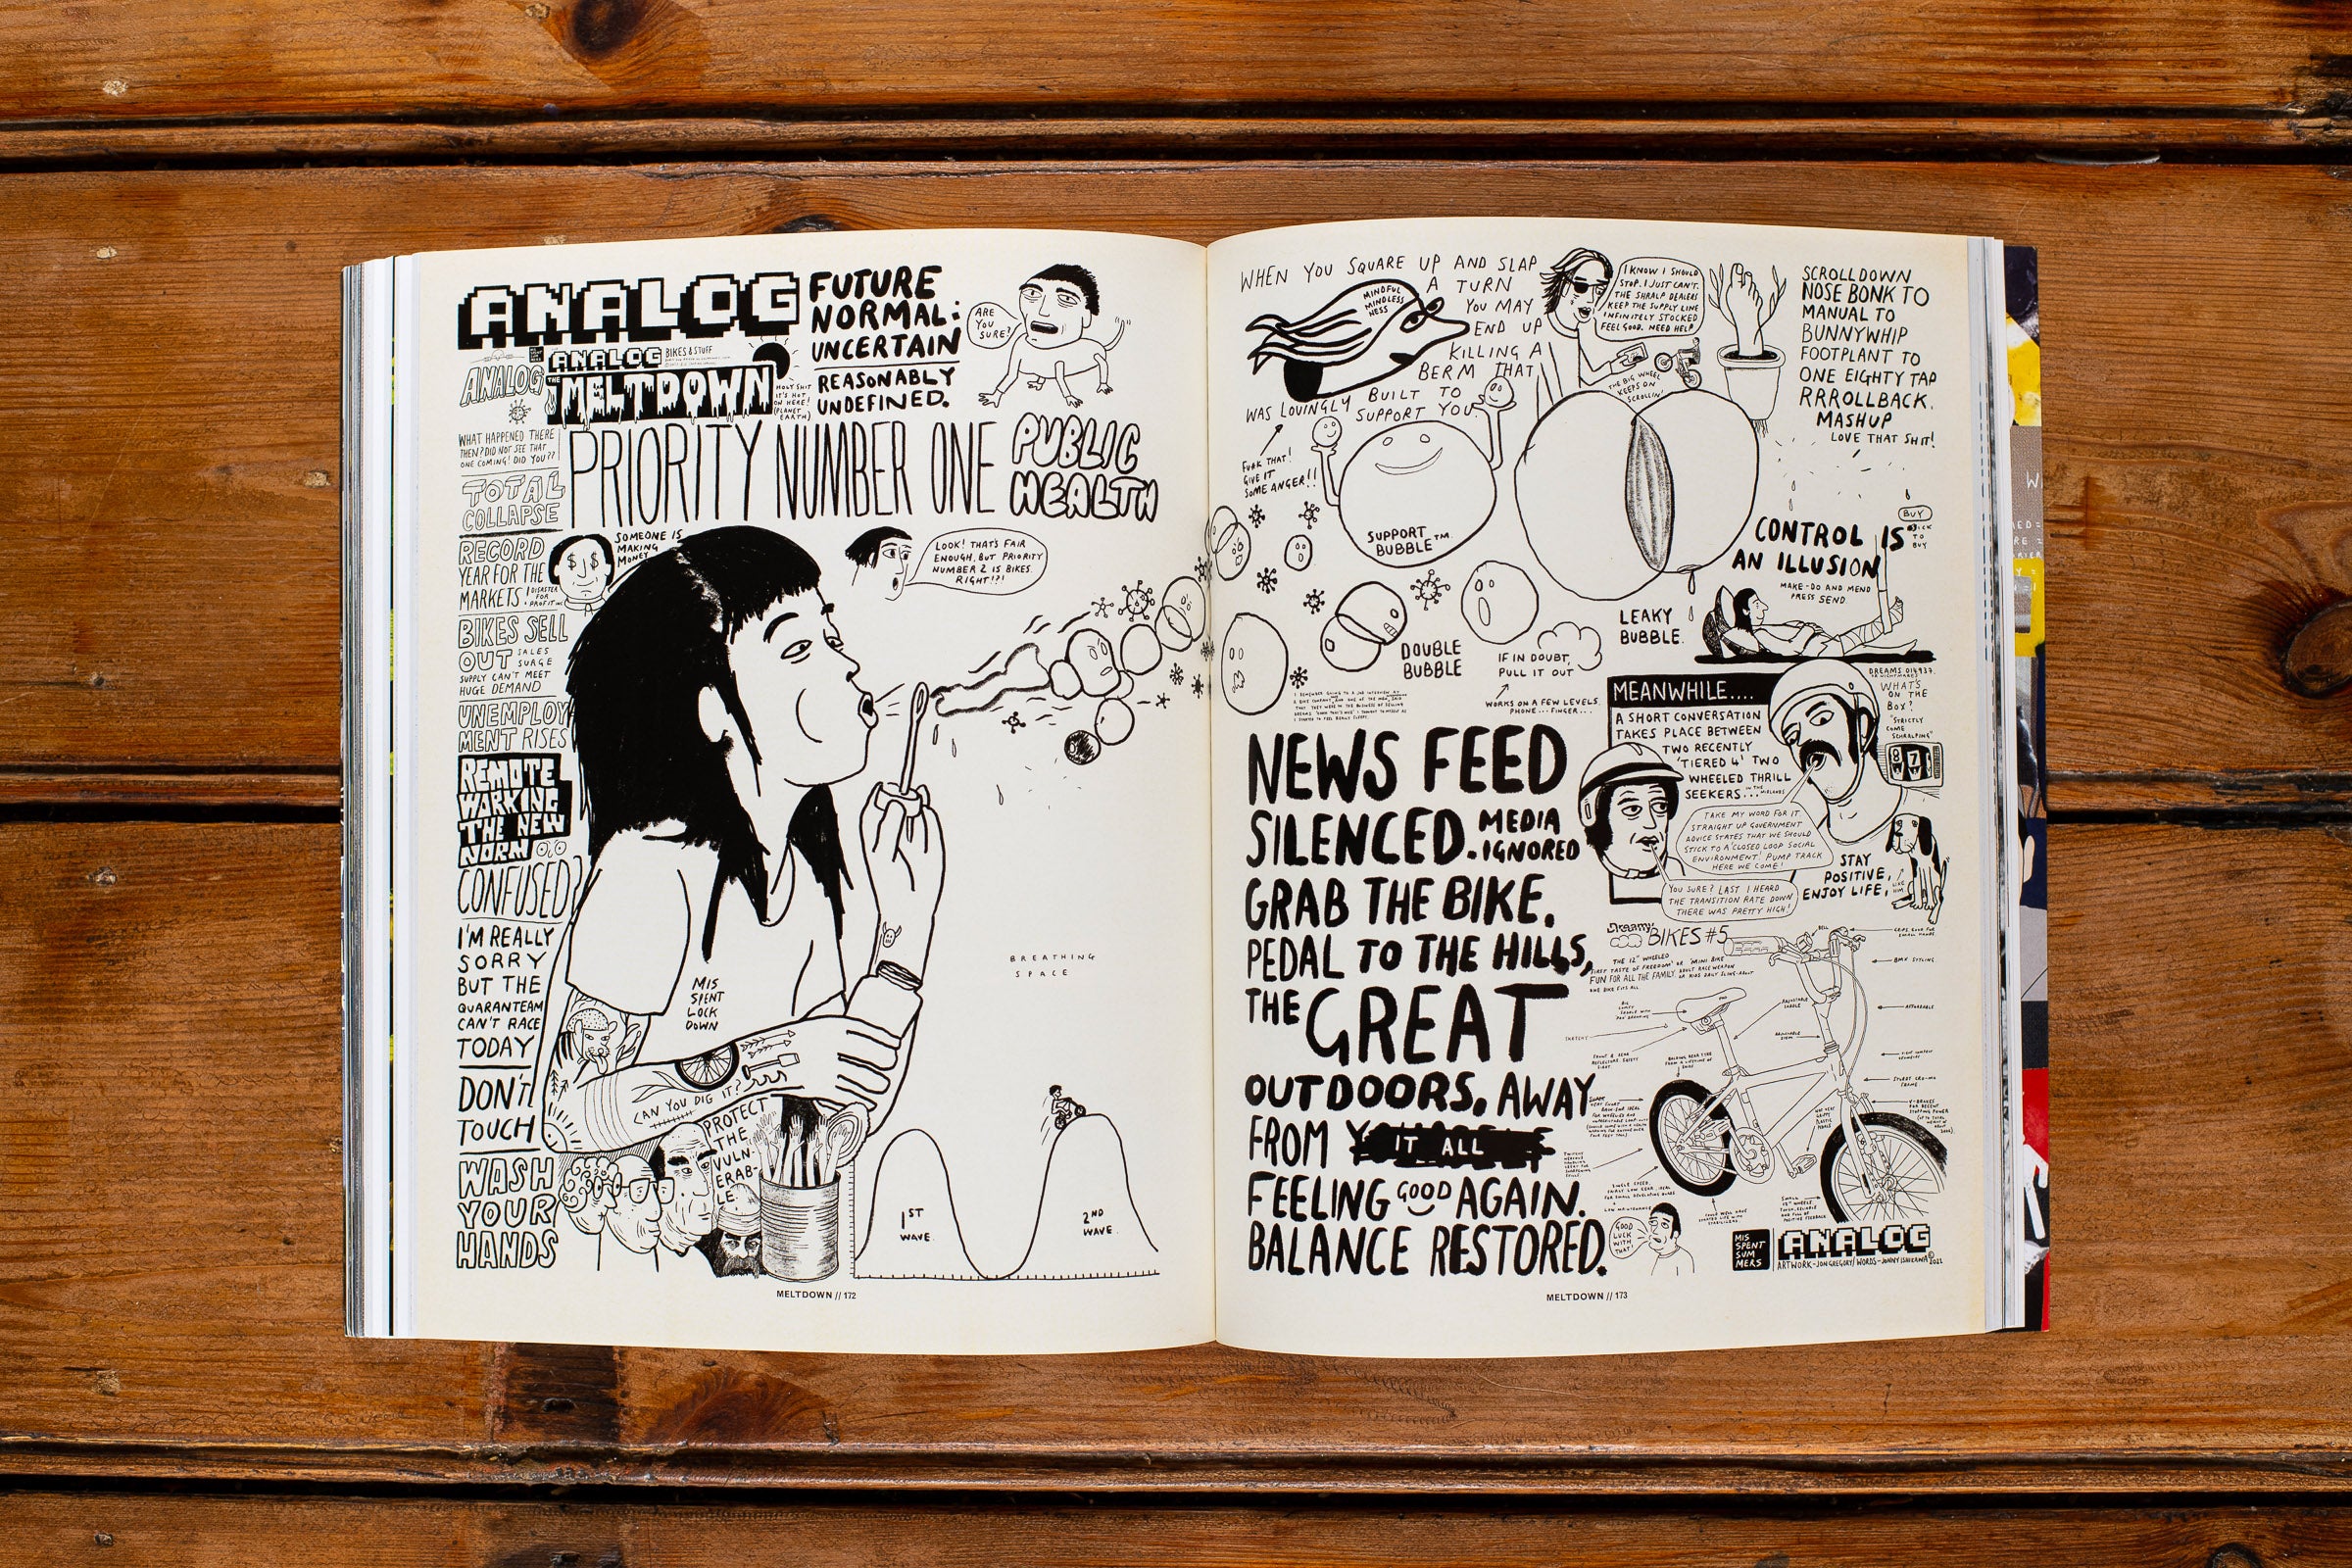 ANALOG
FUTURE
NORMAL:
UNCERTAIN
REASONABLY
UNDEFINED.
ARE
YOU
SURE?
ANALOG
ANALOG
BIKES & STUFF
THE
MELTDOWN
HOLY SHIT
IT'S HOT
ON HERE!
(PLANET
EARTH)
WHAT HAPPENED THERE
THEN? DID NOT SEE THAT
ONE COMING! DID YOU??
PRIORITY NUMBER ONE
PUBLIC
HEALTH
TOTAL
COLLAPSE
RECORD
YEAR FOR THE
MARKETS!
DISASTER
FOR
PROFIT INC
SOMEONE IS
MAKING
MONEY
LOOK! THAT'S FAIR
ENOUGH, BUT PRIORITY
NUMBER 2 IS BIKES.
RIGHT!?!
BIKES SELL
OUT SALES
SURGE
SUPPLY CAN'T MEET
HUGE DEMAND
UNEMPLOY
MENT RISES
REMOTE
WARKING
THE NEW
NORM
CONFUSED?
I'M REALLY
SORRY
BUT THE
QUARANTEAM
CAN'T RACE
TODAY
DON'T
TOUCH
WASH
YOUR
HANDS
MIS
SPENT
LOCK
DOWN
CAN YOU DIG IT?
PROTECT
THE
VULN-
ERAB-
LE
BREATHING
SPACE
1ST
WAVE
2ND
WAVE
MELTDOWN // 172
WHEN YOU SQUARE UP AND SLAP
A TURN
YOU MAY
END UP
KILLING A
BERM THAT
WAS LOVINGLY BUILT TO
SUPPORT YOU.
MINDFUL
MINDLESS
NESS
FUCK THAT!
GIVE IT
SOME ANGER!!
I KNOW I SHOULD
STOP. I JUST CAN'T.
THE SHRALP DEALERS
KEEP THE SUPPLY LINE
INFINITELY STOCKED
FEEL GOOD. NEED HELP
THE BIG WHEEL
KEEPS ON
SCROLLIN'
SCROLL DOWN
NOSE BONK TO
MANUAL TO
BUNNYWHIP
FOOTPLANT TO
ONE EIGHTY TAP
RRROLLBACK.
MASHUP
LOVE THAT SHIT!
SUPPORT
BUBBLE™
BUY
CLICK
TO
BUY
CONTROL IS
AN ILLUSION
MAKE-DO AND MEND
PRESS SEND
LEAKY
BUBBLE.
DOUBLE
BUBBLE
IF IN DOUBT,
PULL IT OUT
WORKS ON A FEW LEVELS.
PHONE... FINGER...
MEANWHILE....
A SHORT CONVERSATION
TAKES PLACE BETWEEN
TWO RECENTLY
'TIERED 4' TWO
WHEELED THRILL
SEEKERS... IN THE MIDLANDS
WHAT'S
ON THE
BOX?
"STRICTLY
COME
SCHRALPING"
TAKE MY WORD FOR IT
STRAIGHT UP GOVERNMENT
ADVICE STATES THAT WE SHOULD
STICK TO A 'CLOSED LOOP SOCIAL
ENVIRONMENT! PUMP TRACK
HERE WE COME!
YOU SURE? LAST I HEARD
THE TRANSITION RATE DOWN
THERE WAS PRETTY HIGH!
STAY
POSITIVE,
ENJOY LIFE,
LIKE
HIM
NEWS FEED
SILENCED. MEDIA
IGNORED
GRAB THE BIKE.
PEDAL TO THE HILLS,
THE GREAT
OUTDOORS. AWAY
FROM IT ALL
FEELING GOOD AGAIN.
BALANCE RESTORED.
Dreamy
BIKES #5
THE 12" WHEELED
FIRST TASTE OF FREEDOM' OR 'MINI BIKE
FUN FOR ALL THE FAMILY.
ONE BIKE FITS ALL
BELL
BMX STYLING
AFFORDABLE
ADJUSTABLE
SADDLE
LOW MAINTENANCE
GOOD
LUCK
WITH
THAT!
MIS
SPENT
SUM
MERS
ANALOG
ARTWORK - JON GREGORY / WORDS - JONNY ISHIKAWA
MELTDOWN // 173